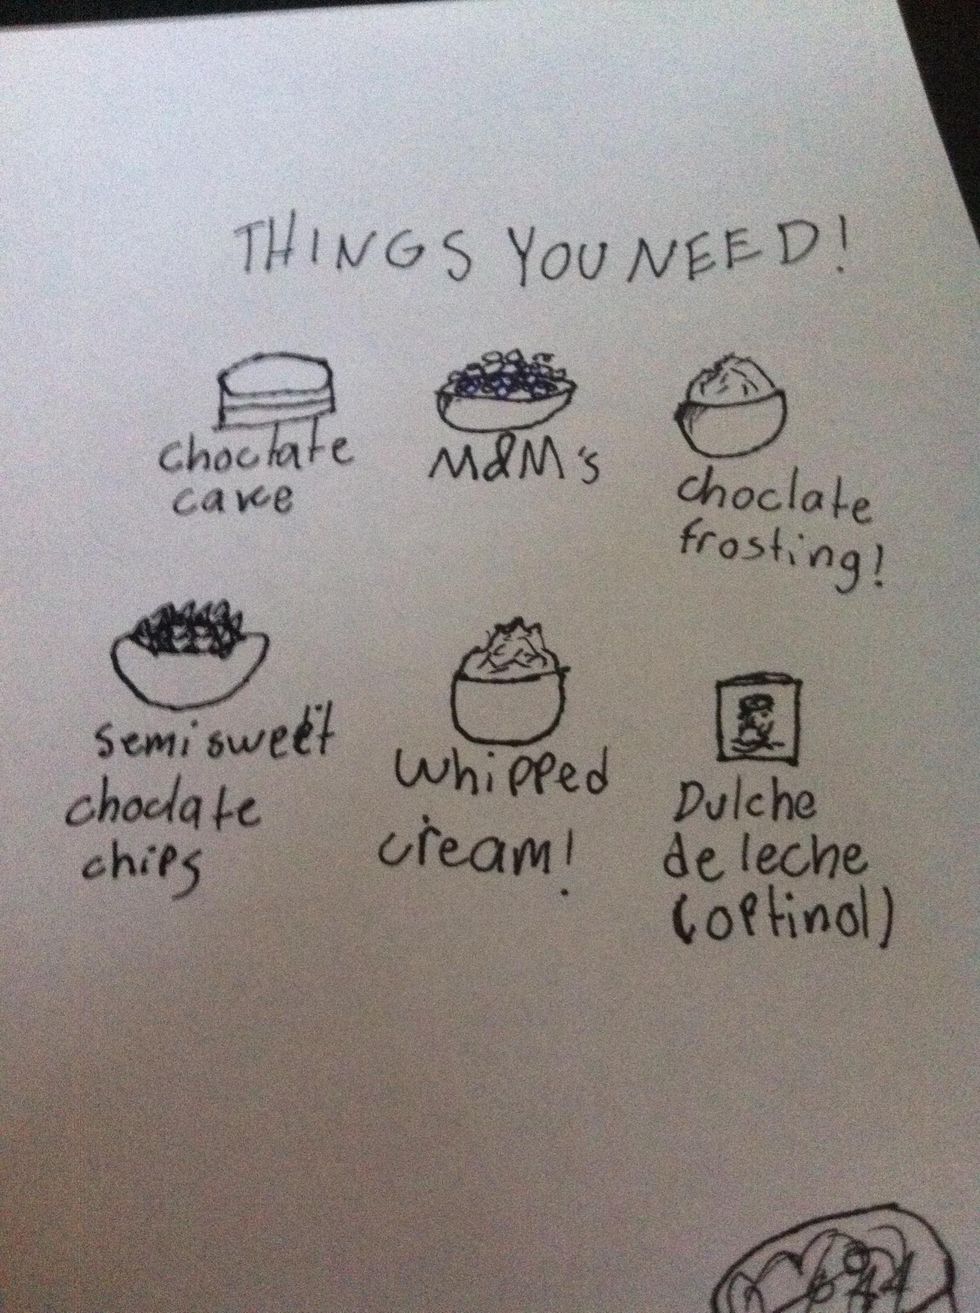 THINGS YOU NEED!
choclate
cake
M&M's
choclate
frosting!
semi sweet
choclate
chips
Whipped
cream!
Dulche
de leche
(optinol)